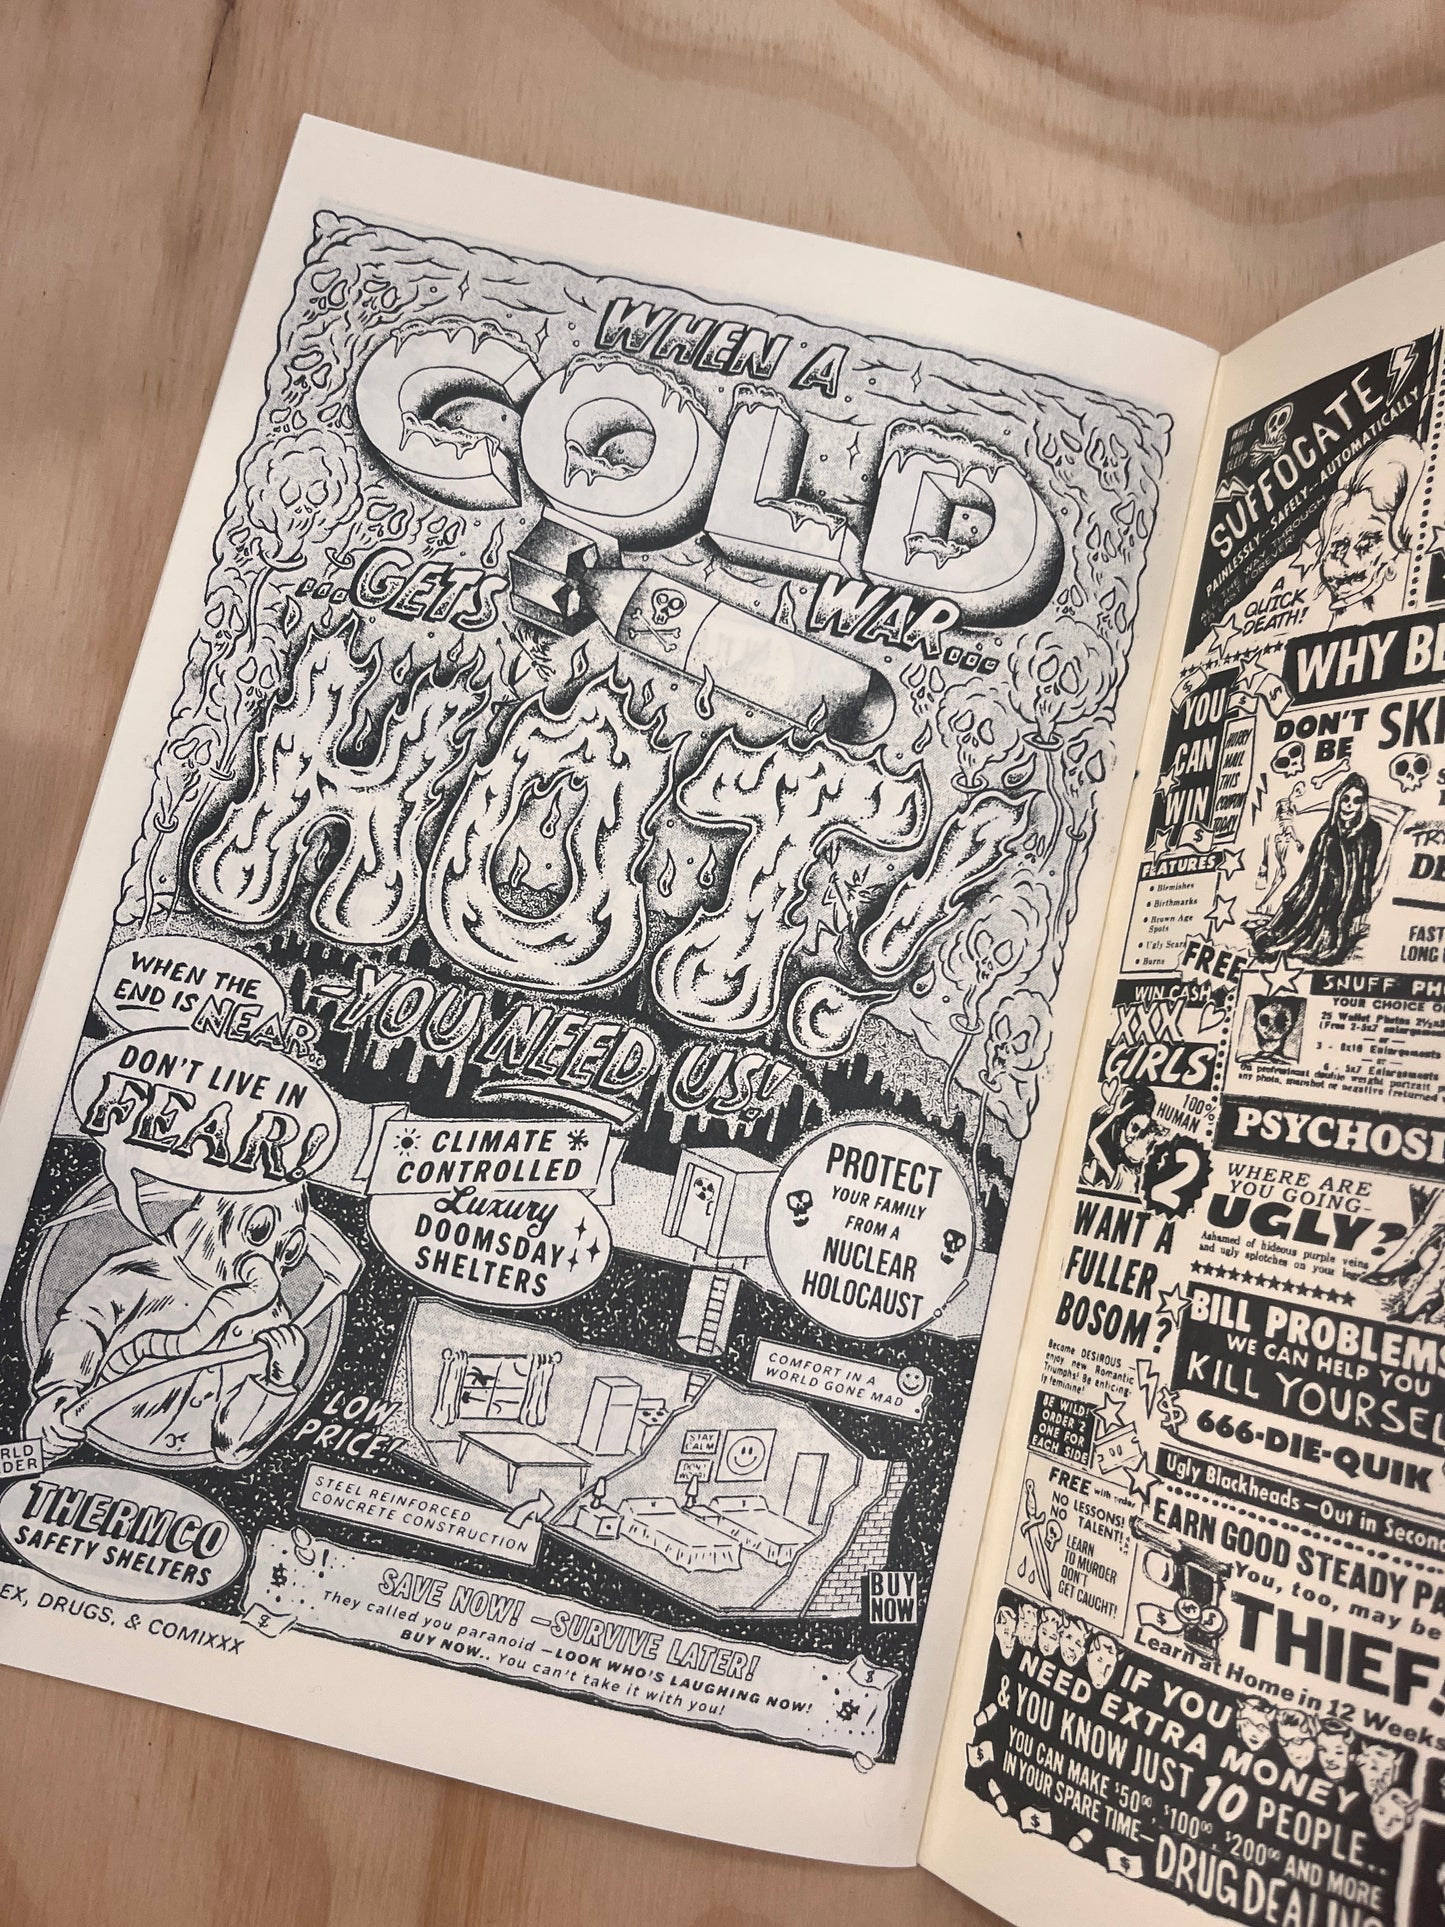 WHEN A
COLD
WAR...
...GETS
HOT!
-YOU NEED US!
WHEN THE
END IS NEAR..
DON'T LIVE IN
FEAR!
CLIMATE
CONTROLLED
Luxury
DOOMSDAY
SHELTERS
PROTECT
YOUR FAMILY
FROM A
NUCLEAR
HOLOCAUST
COMFORT IN A
WORLD GONE MAD
LOW
PRICE!
STAY
CALM
STEEL REINFORCED
CONCRETE CONSTRUCTION
THERMCO
SAFETY SHELTERS
BUY
NOW
SAVE NOW! -SURVIVE LATER!
They called you paranoid -LOOK WHO'S LAUGHING NOW!
BUY NOW.. You can't take it with you!
EX, DRUGS, & COMIXXX
WHILE
YOU
SLEEP
SUFFOCATE
PAINLESSLY-SAFELY-AUTOMATICALLY
A
QUICK
DEATH!
WHY BE
YOU
CAN
WIN
MAIL
THIS
COUPON
TODAY
DON'T
BE
SKI
FEATURES
Blemishes
Birthmarks
Brown Age
Spots
Ugly Scars
Burns
FREE
FAST
LONG
WIN CASH
XXX
GIRLS
100%
HUMAN
2
SNUFF PH
YOUR CHOICE O
25 Wallet Photos
3 - 8x10 Enlargements
6 - 5x7 Enlargements
On professional double weight portrait
any photo, snapshot or negative (returned
PSYCHOSI
WHERE ARE
YOU GOING-
UGLY?
Ashamed of hideous purple veins
and ugly splotches on your
WANT A
FULLER
BOSOM?
Become DESIROUS
enjoy new Romantic
Triumphs! Be enticing
BE WILD!
ORDER 2
ONE FOR
EACH SIDE!
BILL PROBLEMS
WE CAN HELP YOU
KILL YOURSEL
666-DIE-QUIK
Ugly Blackheads-Out in Second
FREE with order
NO LESSONS!
NO TALENT!
LEARN
TO MURDER
DON'T
GET CAUGHT!
EARN GOOD STEADY PA
You, too, may be
THIEF!
Learn at Home in 12 Weeks
IF YOU
NEED EXTRA MONEY
& YOU KNOW JUST 10 PEOPLE..
YOU CAN MAKE $50⁰⁰, $100⁰⁰, $200⁰⁰ AND MORE
IN YOUR SPARE TIME-
DRUG DEALIN